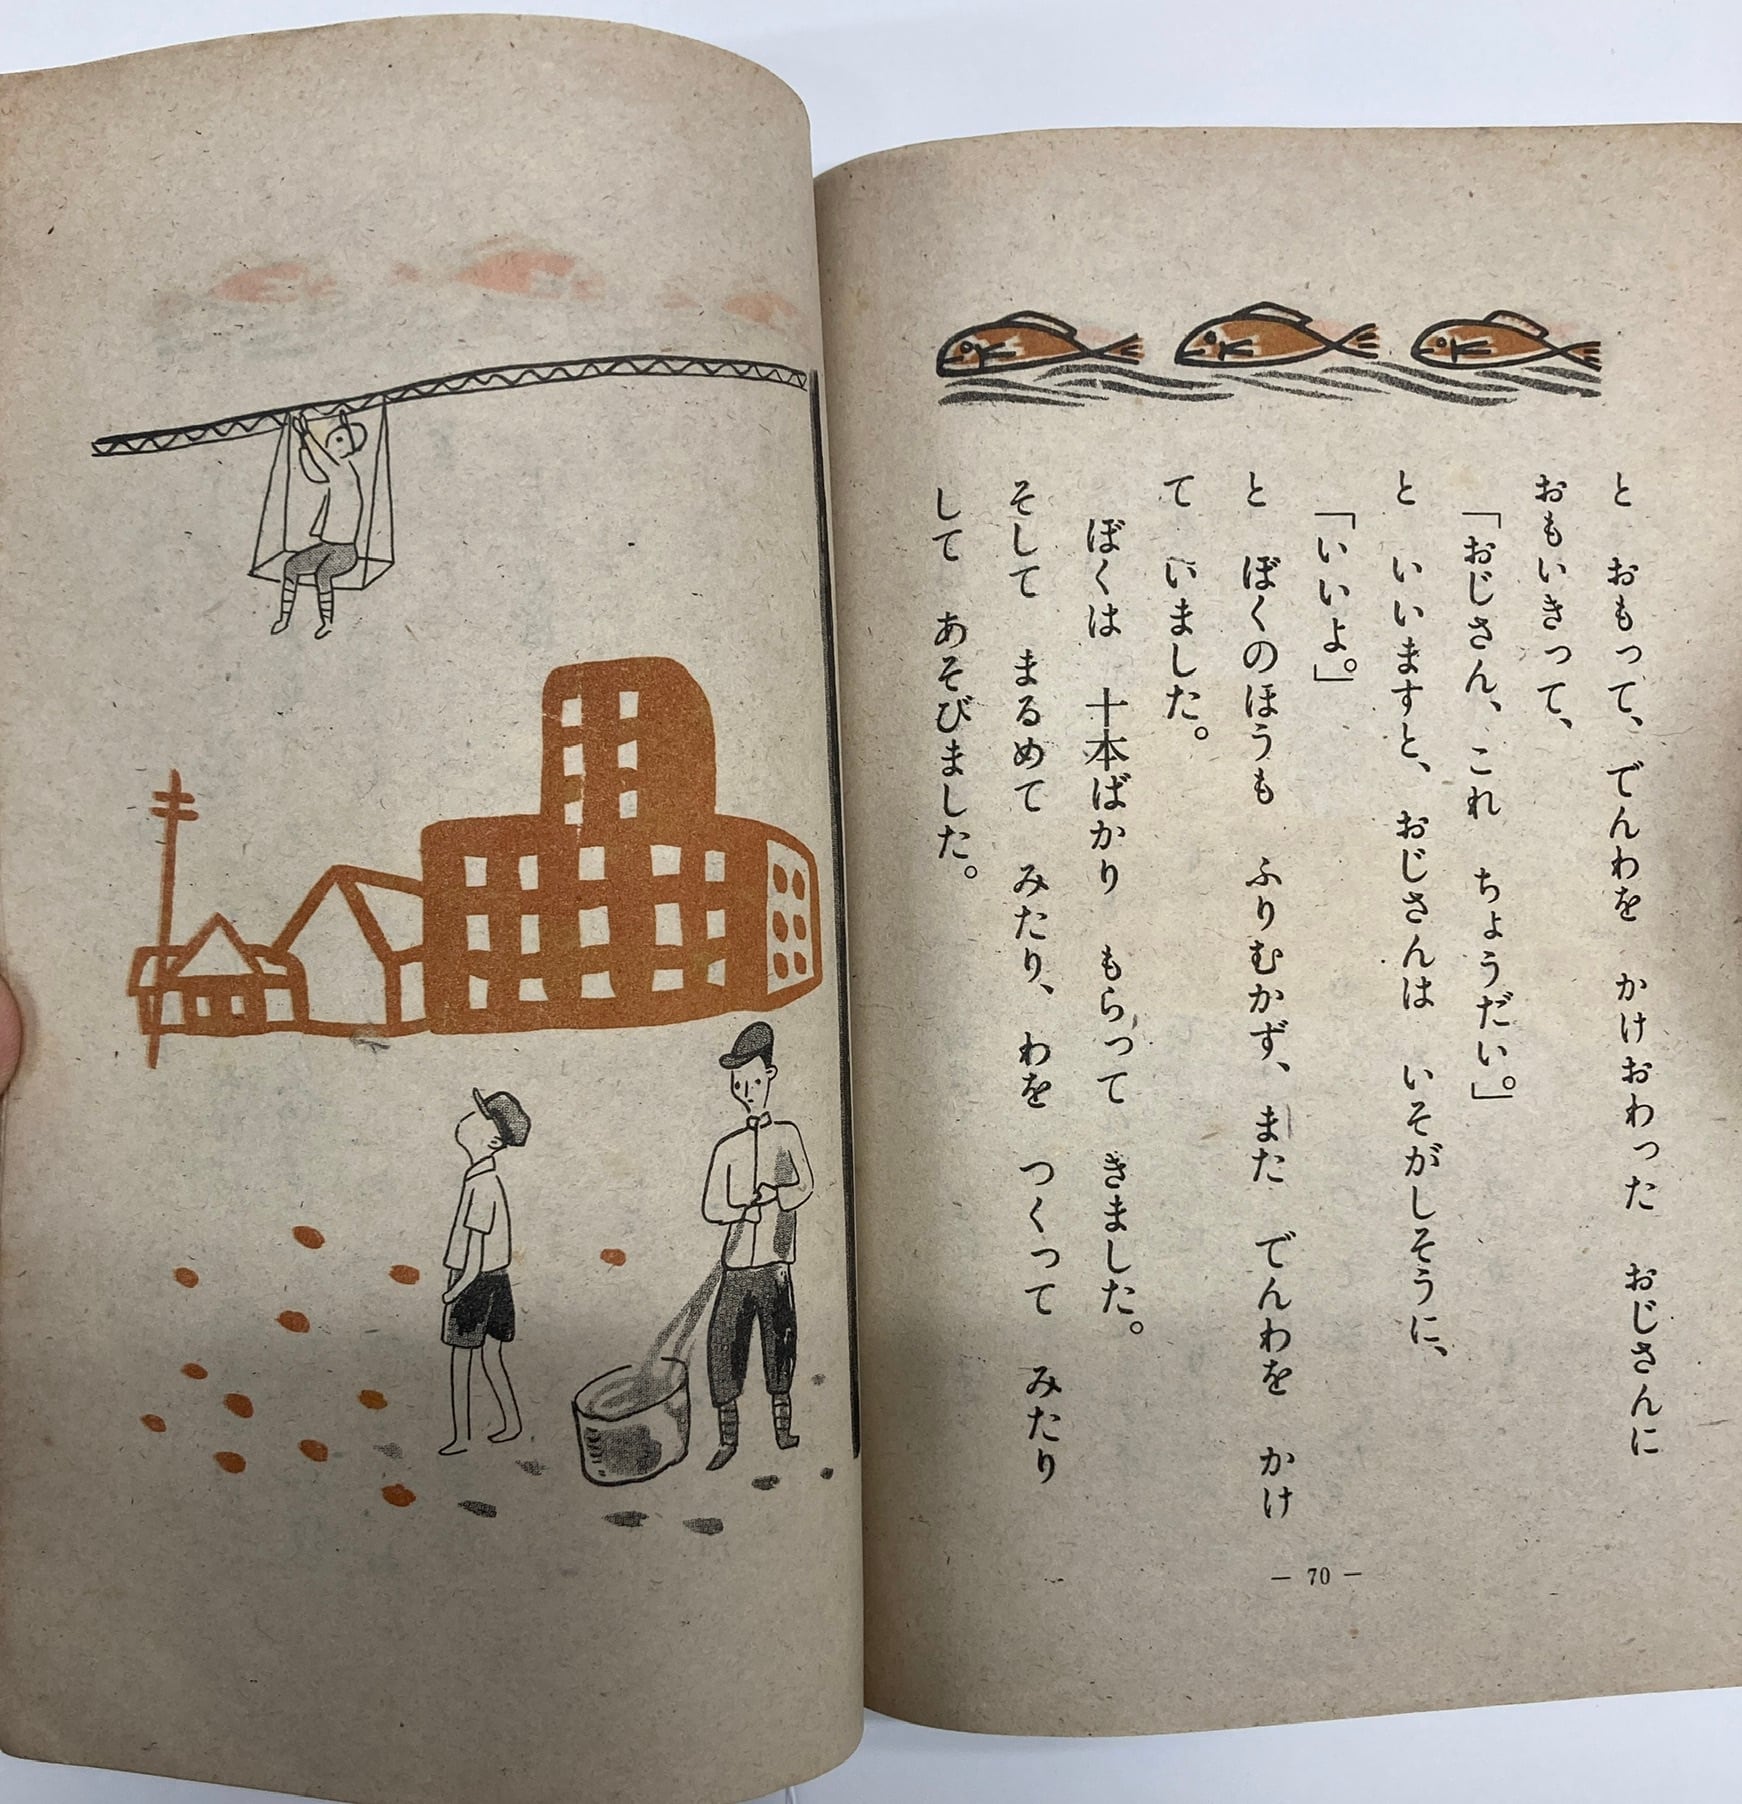 と　おもって、でんわを　かけおわった　おじさんに
おもいきって、
「おじさん、これ　ちょうだい。」
と　いいますと、おじさんは　いそがしそうに、
「いいよ。」
と　ぼくのほうも　ふりむかず、また　でんわを　かけ
て　いました。
ぼくは　十本ばかり　もらって　きました。
そして　まるめて　みたり、わを　つくって　みたり
して　あそびました。
— 70 —